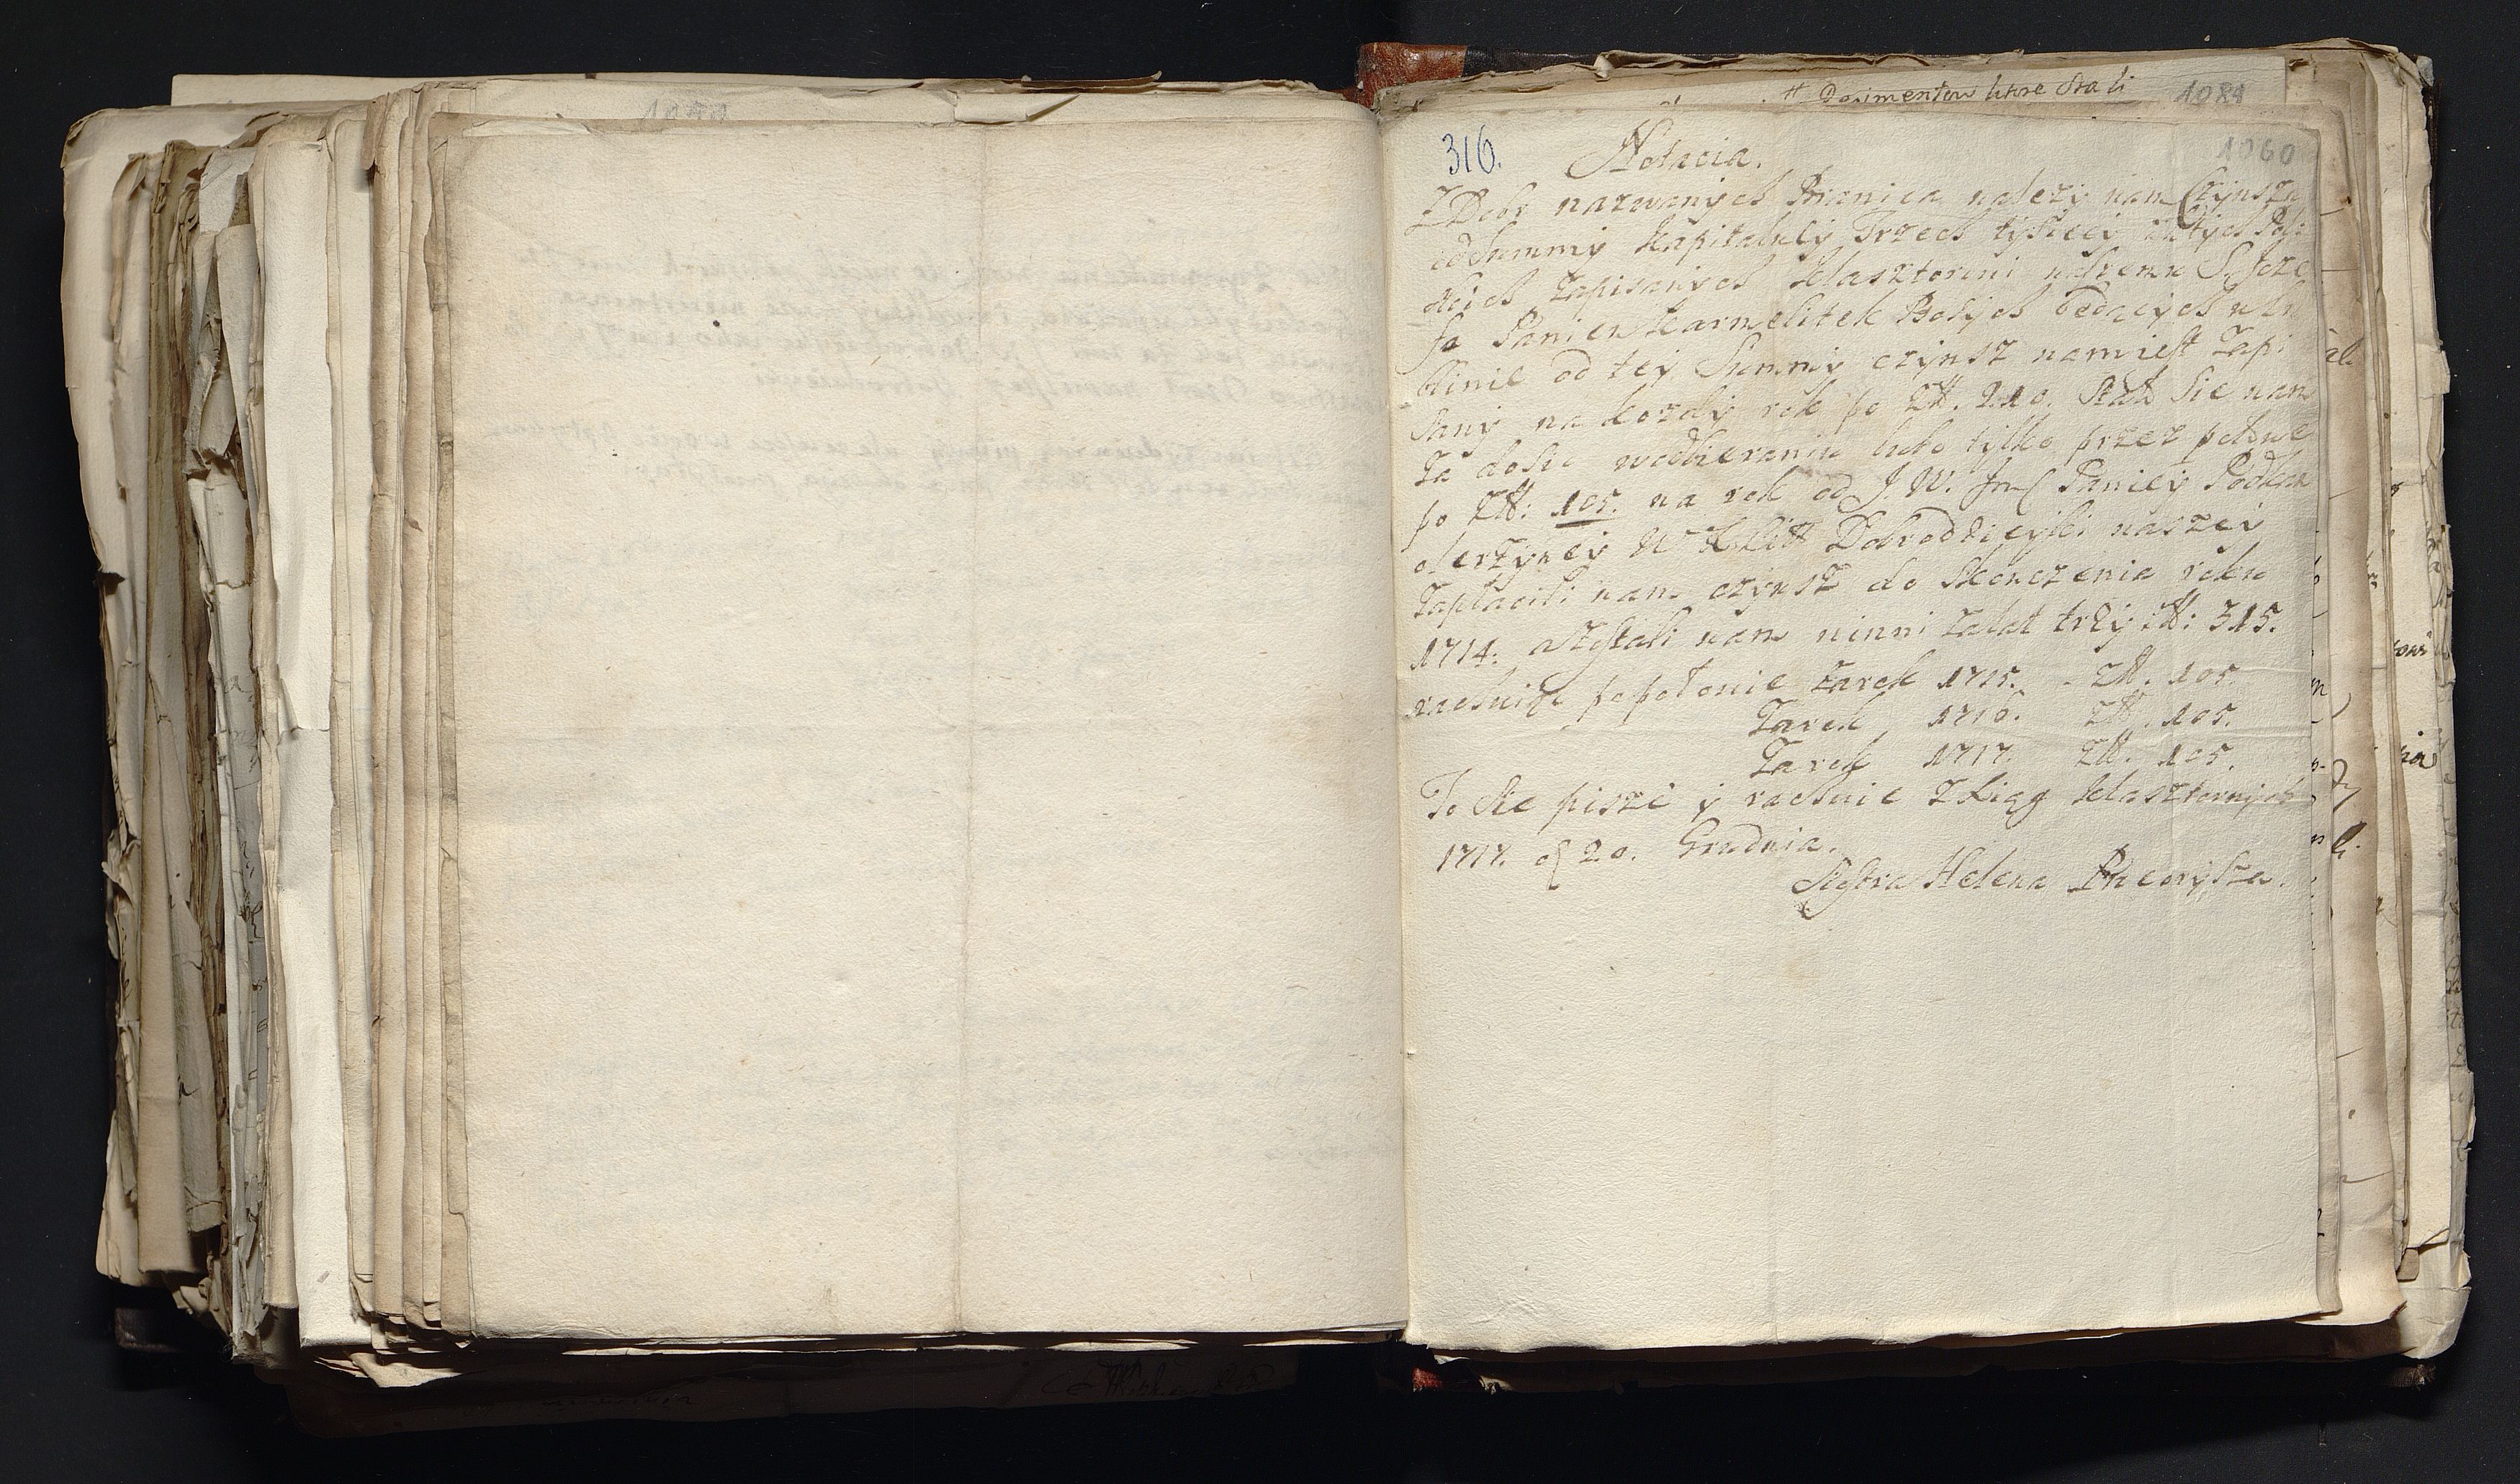 # Dokumentow ktore stali
1089
316.
1060
Notacia.
Z Dobr nazwanych Branica nalezy nam Czynszu
od Summy kapitalney Trzech tysiecy złotych Pols
kich zapisanych klasztorowi naszemu S. Joze
fa Panien Karmelitek Bosych bedących w Lu
blinie od tey Summy czynsz namiest zapi
sany na kozdy rok po Złł. 210. Stało sie nam
za dosic w odbieraniu tylko przez połowe
po Złł: 105. na rok od J. W. Jm Paniey Podkan
clerzyney W X Litt Dobrodzieyki naszey
Zapłacili nam czynsz do skonczenia roku
1714. Zostali nam winni za lat trzy Złł: 315.
rachuiąc po połowie za rok 1715. - Złł. 105.
Za rok 1716. Złł. 105.
Za rok 1717. Złł. 105.
To sie pisze y rachuie z Xiąg klasztornych
1717. d 20. Grudnia.
Siostra Helena